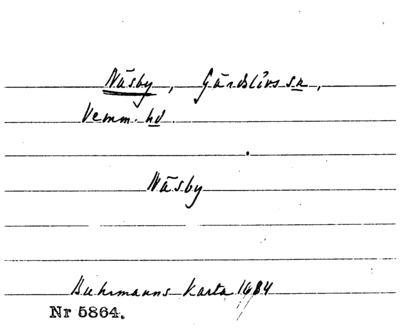 Näsby, Gärdslövs sn,
Vemm. hd.
Näsby
Buhrmanns Karta 1684
Nr 5864.